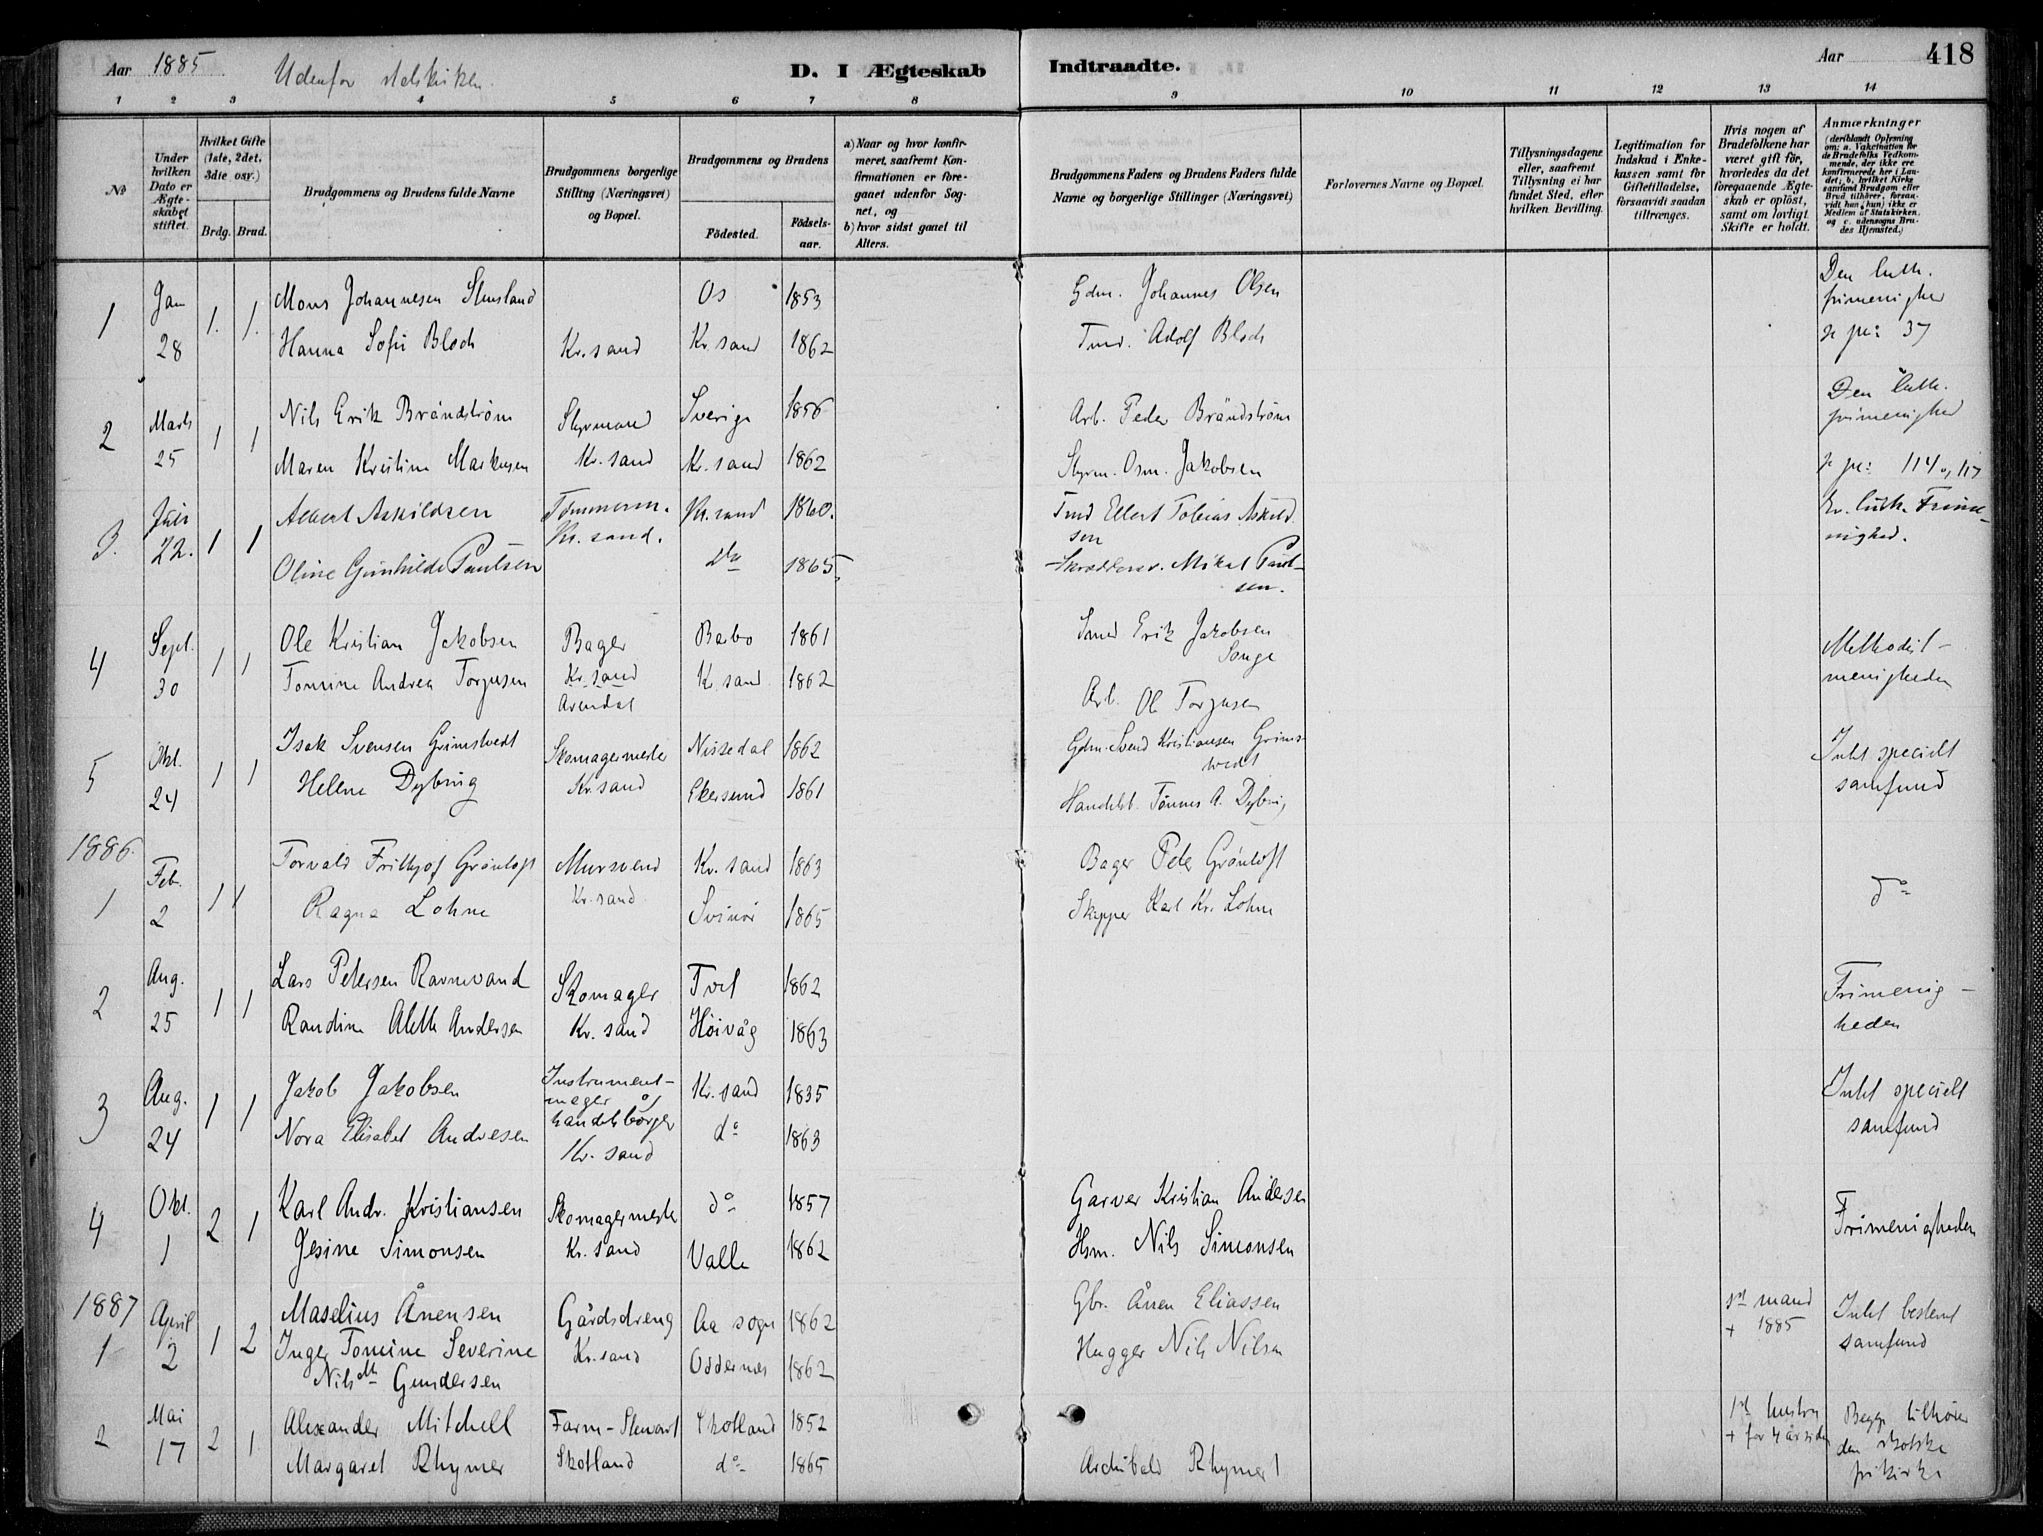 Aar 1885 Udenfor statskirken. D. I Ægteskab Indtraadte. Aar 418
1 2 3 4 5 6 7 8 9 10 11 12 13 14
No
Under hvilken Dato er Ægteskabet stiftet.
Hvilket Gifte (1ste, 2det, 3die osv.)
Brdg. Brud.
Brudgommens og Brudens fulde Navne
Brudgommens borgerlige Stilling (Næringsvei) og Bopæl.
Brudgommens og Brudens
Födested. Födselsaar.
a) Naar og hvor konfirmeret, saafremt Konfirmationen er foregaaet udenfor Sognet, og
b) hvor sidst gaaet til Alters.
Brudgommens Faders og Brudens Faders fulde Navne og borgerlige Stillinger (Næringsvei)
Forlovernes Navne og Bopæl.
Tillysningsdagene eller, saafremt Tillysning ei har fundet Sted, efter hvilken Bevilling.
Legitimation for Indskud i Enkekassen samt for Giftetilladelse, forsaavidt saadan tiltrænges.
Hvis nogen af Brudefolkene har været gift för, hvorledes da det foregaaende Ægteskab er oplöst, samt om lovligt Skifte er holdt.
Anmærkninger
(deriblandt Oplysning om: a. Vakcination for de Brudefolks Vedkommende, der ikke ere konfirmerede her i Landet; b. hvilket Kirkesamfund Brudgom eller Brud tilhörer, forsaavidt han (hun) ikke er Medlem af Statskirken, og c. udensogns Brudes Hjemsted.)
1 Jan 28 1. 1. Mons Johannesen Stensland Os 1853 Gdm. Johannes Olsen Den luth. frimenighed
Hanna Sofie Bloch Kr.sand Kr. sand 1862 Tmd. Adolf Bloch 37
2 Marts 25 1 1 Nils Erik Brändström Styrmand Sverige 1856 Arb. Peder Brändström Den luth. frimenighed
Maren Kristine Markusen Kr. sand Kr. sand 1862 Styrm. Osm. Jakobsen 114 og 117
3. Juli 22. 1 1 Albert Askildsen Tømmerm. Kr. sand. Kr. sand 1860. Tmd Ellert Tobias Askildsen Ev. luth. Frimenighed.
Oline Gunhilde Paulsen Do 1865. Skrædderm. Mikal Paulsen.
4 Sept. 30 1 1 Ole Kristian Jakobsen Bager Barbo 1861 Smed Erik Jakobsen Songe Methodistmenigheden
Tomine Andrea Torjusen Kr. sand Arendal Kr. sand 1862 Arb. Ole Torjusen
5 Okt. 24 1 1 Isak Svensen Grimstvedt Skomagermester Nissedal 1862 Gdm. Svend Kristiansen Grimstvedt Intet specielt samfund
Helene Dybing Kr. sand Ekersund 1861 Handelsb. Tønnes A. Dybing
1886.
1 Feb. 2 1 1 Torvald Frithjof Grønloft Mursvend Kr. sand 1863 Bager Peter Grønloft do
Ragna Lohne Kr. sand Svinør 1865 Skipper Karl Kr. Lohne
2 Aug. 25 1 1 Lars Petersen Ravnevand Skomager Tveit 1862 Frimenigheden
Randine Aleth Andersen Kr. sand Høivåg 1863
3 Aug. 24 1 1 Jakob Jakobsen Instrumentmager og Kr. sand 1835 Intet specielt samfund
Nora Elisabet Andresen handelsborger Kr. sand do 1863
4 Okt. 1 2 1 Karl Andr. Kristiansen Skomagermester do 1857 Garver Kristian Andersen Frimenigheden
Jesine Simonsen Kr. sand Valle 1862 Hsm. Nils Simonsen
1887
1 April 2 1 2 Maselius Ånensen Gårdsdreng Aa sogn 1862 Gbr. Ånen Eliassen 1st mand + 1885 Intet bestemt samfund
Inger Tomine Severine Nilsdtr Gundersen Kr. sand Oddernes 1862 Hugger Nils Nilsen
2 Mai 17 2 1. Alexander Mitchell Farm-Stewart Skotland 1852 1st hustru + for 4 år siden Begge tilhører den skotske frikirke
Margaret Rhymer Skotland do 1865 Archibald Rhymer